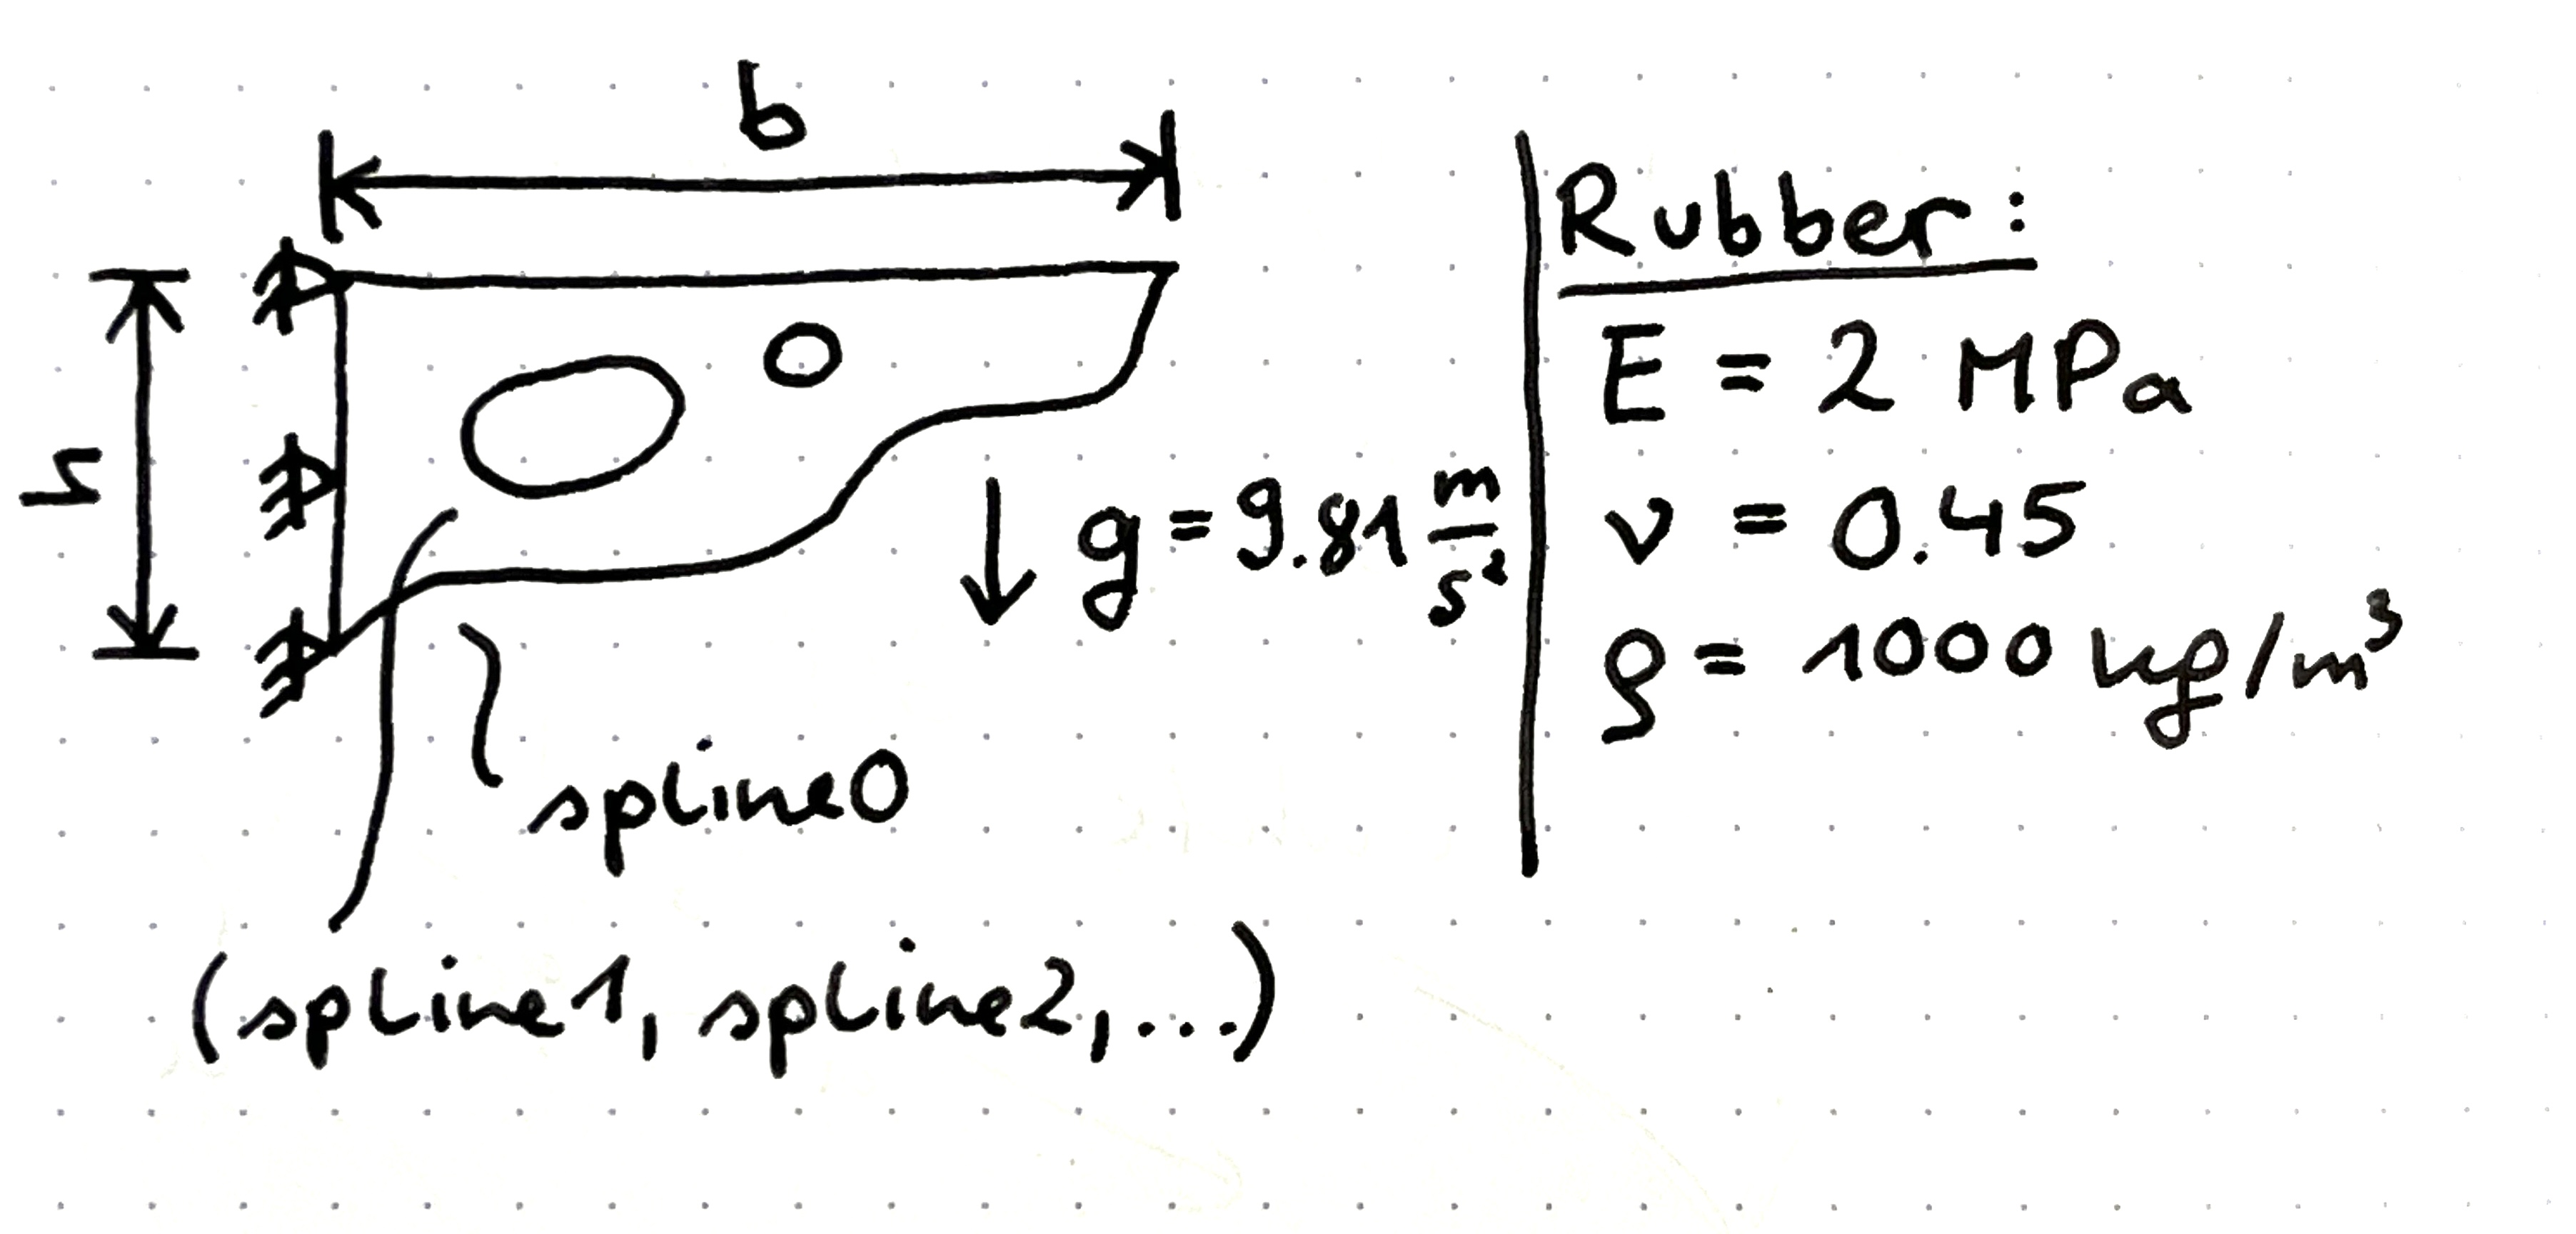 b
h
g = 9.81 m/s²
spline0
(spline1, spline2, ...)
Rubber:
E = 2 MPa
ν = 0.45
ρ = 1000 kg/m³